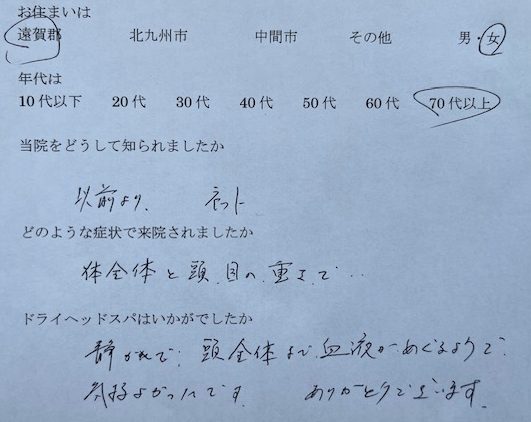 お住まいは
遠賀郡 北九州市 中間市 その他 男・女
年代は
10代以下 20代 30代 40代 50代 60代 70代以上
当院をどうして知られましたか
以前より、 ネット
どのような症状で来院されましたか
体全体と頭、目の重さで…
ドライヘッドスパはいかがでしたか
静かで、頭全体まで血液がめぐるようで、
気持よかったです。 ありがとうございます。